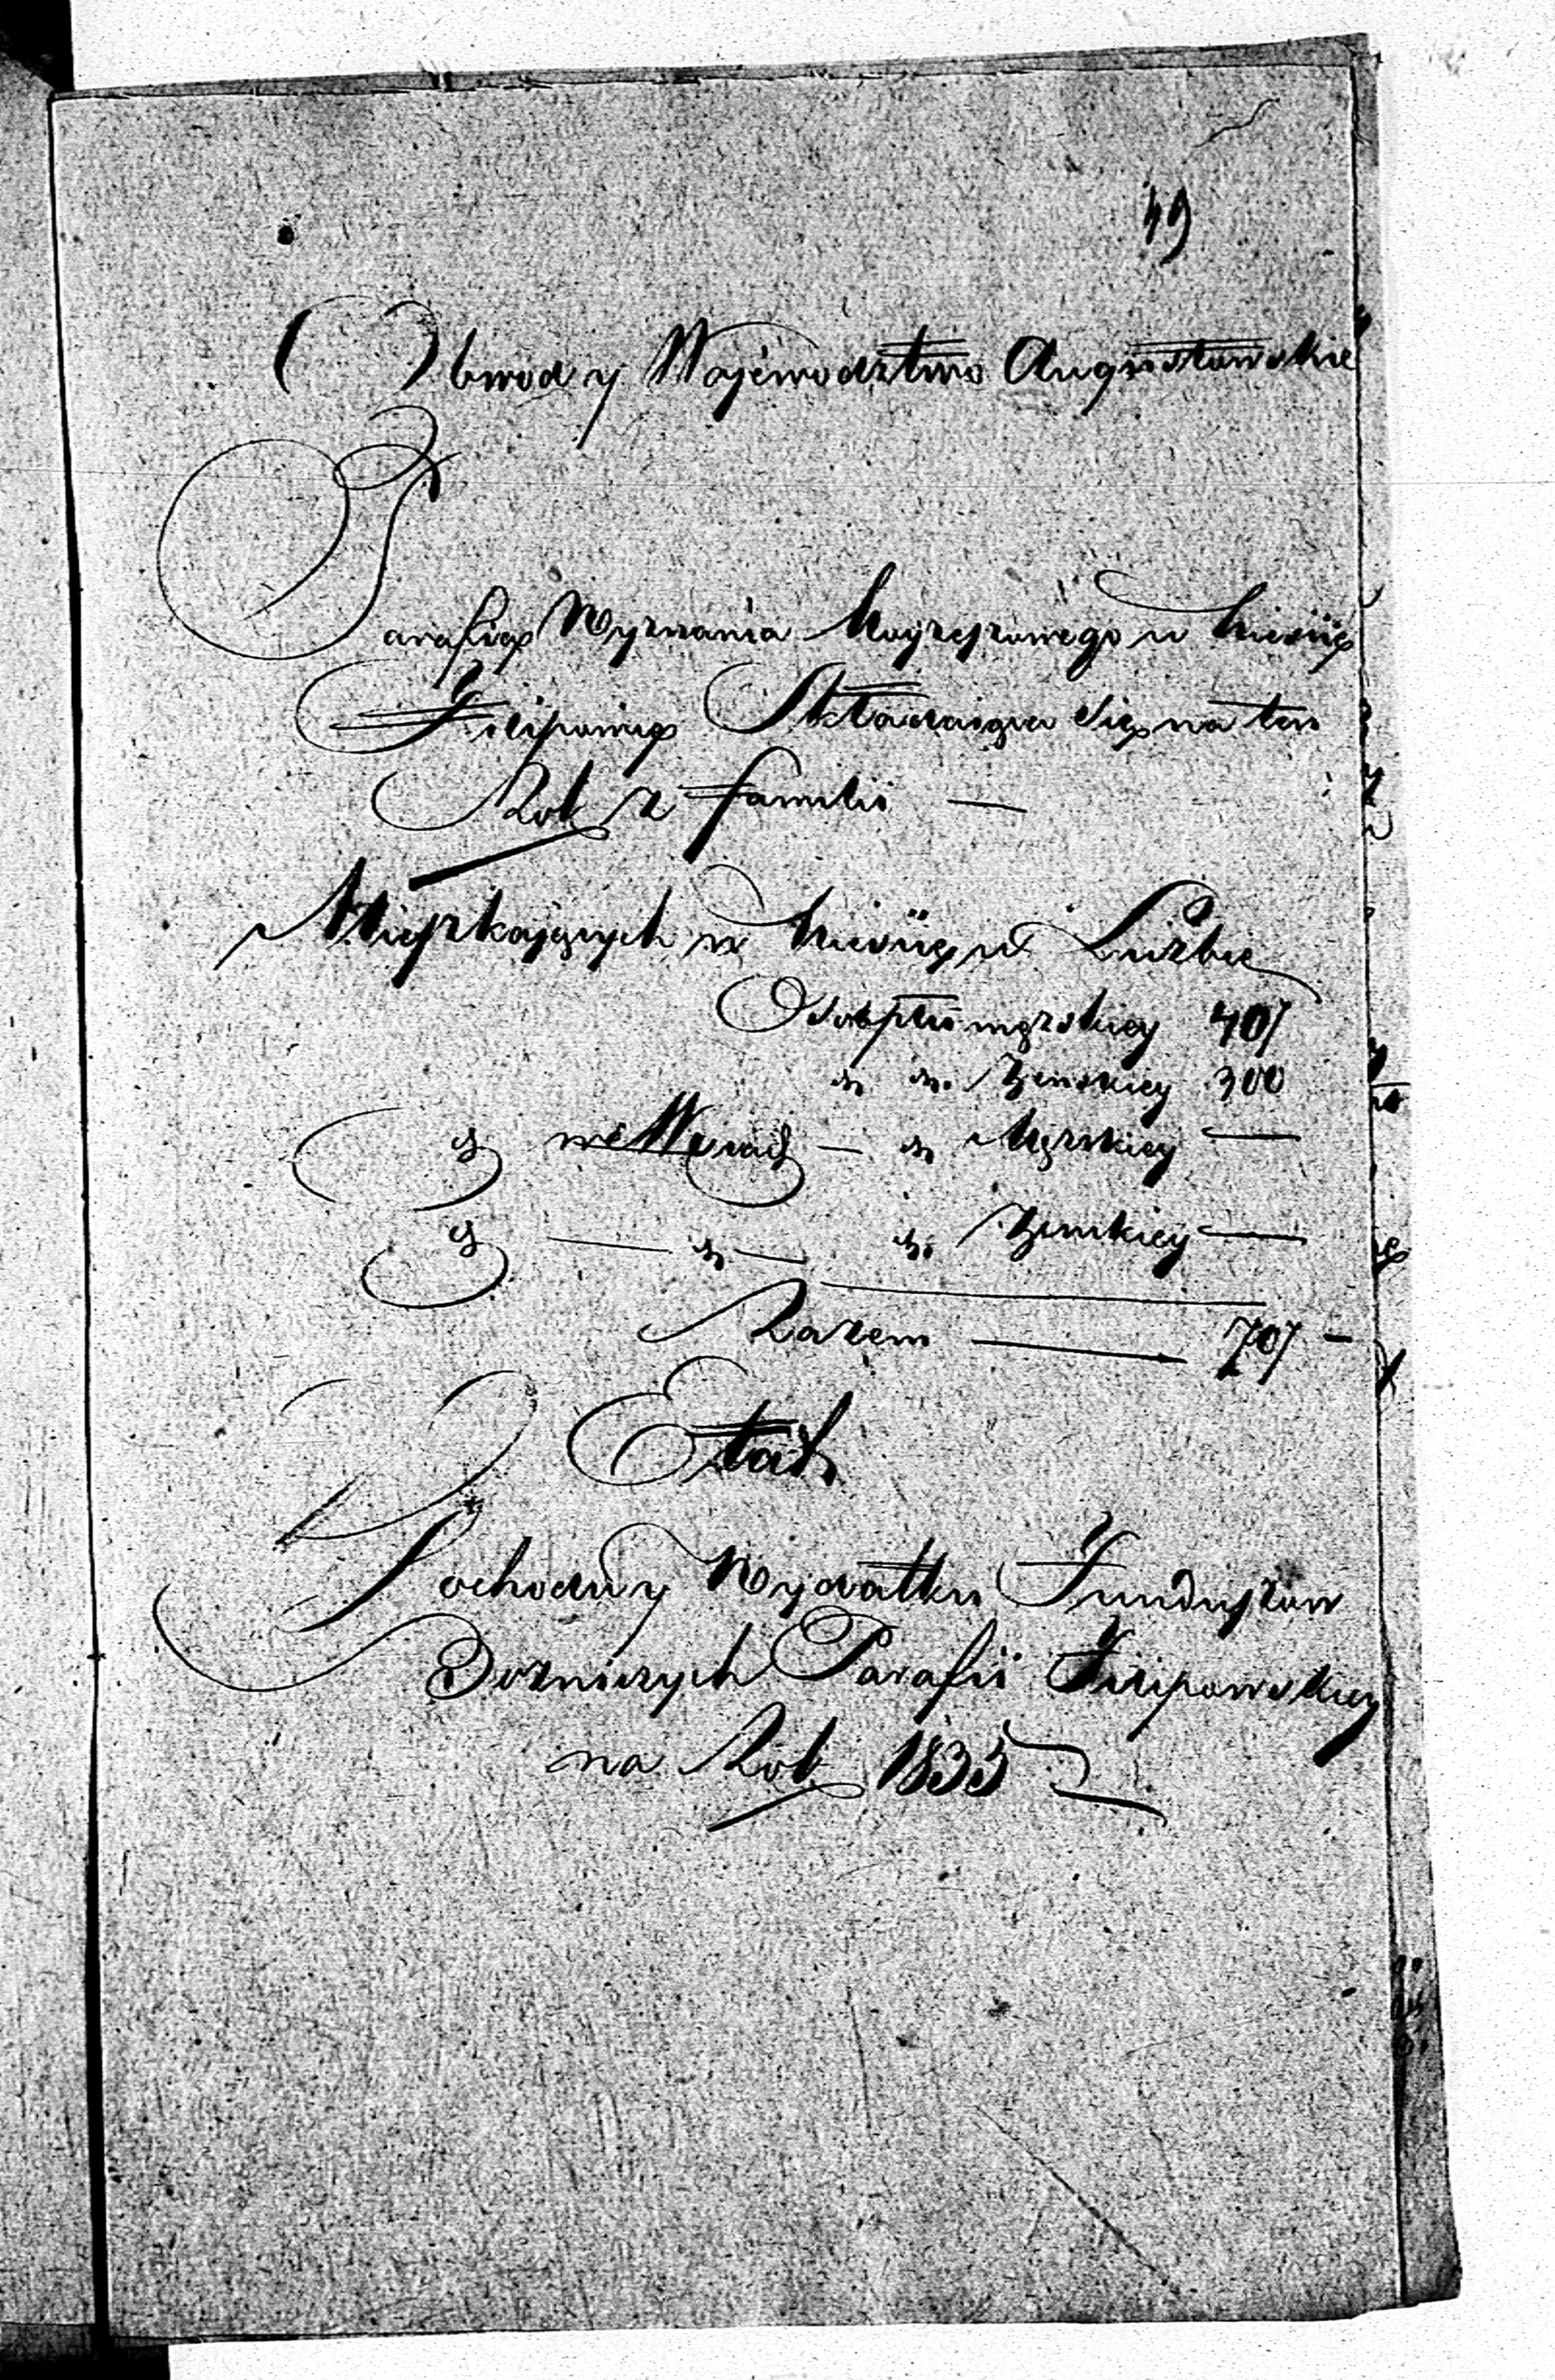 49
Obwod y Wojewodztwo Augustowskie
Parafia Wyznania Moyzeszowego w Mieście
Filipowie Składaiąca się na ten
Rok z familii —
Mieszkających w Mieście w Liczbie
Osob płci męzkiey 407
" " Zenskiey 300
" we Wsiach — " Męzkiey —
" — " — " Zenskiey —
Razem — 707 —
Etat
Dochodu y Wydatku Funduszow
Bozniczych Parafii Filipowskiey
na Rok 1835